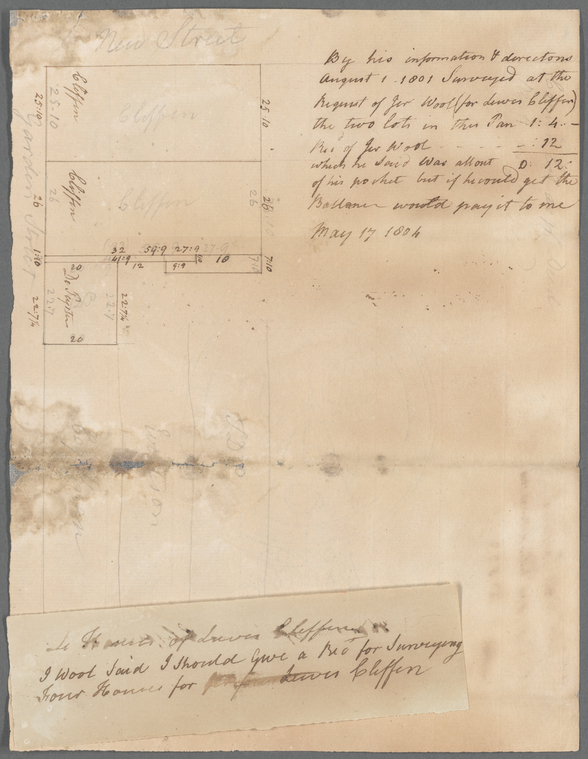 New Street
By his information & directons
August 1 1801 Surveyed at the
Request of Jer Wool (for Lewis Cliffen)
the two lots in this Pan 1: 4: -
Rec of Jer Wool - - - - -: 12
which he Said was all out 0: 12:
of his pocket but if he could get the
Ballance would pay it to me
May 17 1804
Cliffen
25:10
25:10
25:10
Cliffen
Garden Street
Cliffen
26
28
Cliffen
28
26
1:10
32 59:9 27:9 27:9
4:9 12 9:9 10
7:10
20
De Peyster
22:7½
22:7
22:7½
20
Houses of Lewis Cliffen
J Wool Said I Should Give a Rec for Surveying
Four Houses for Lewis Cliffen